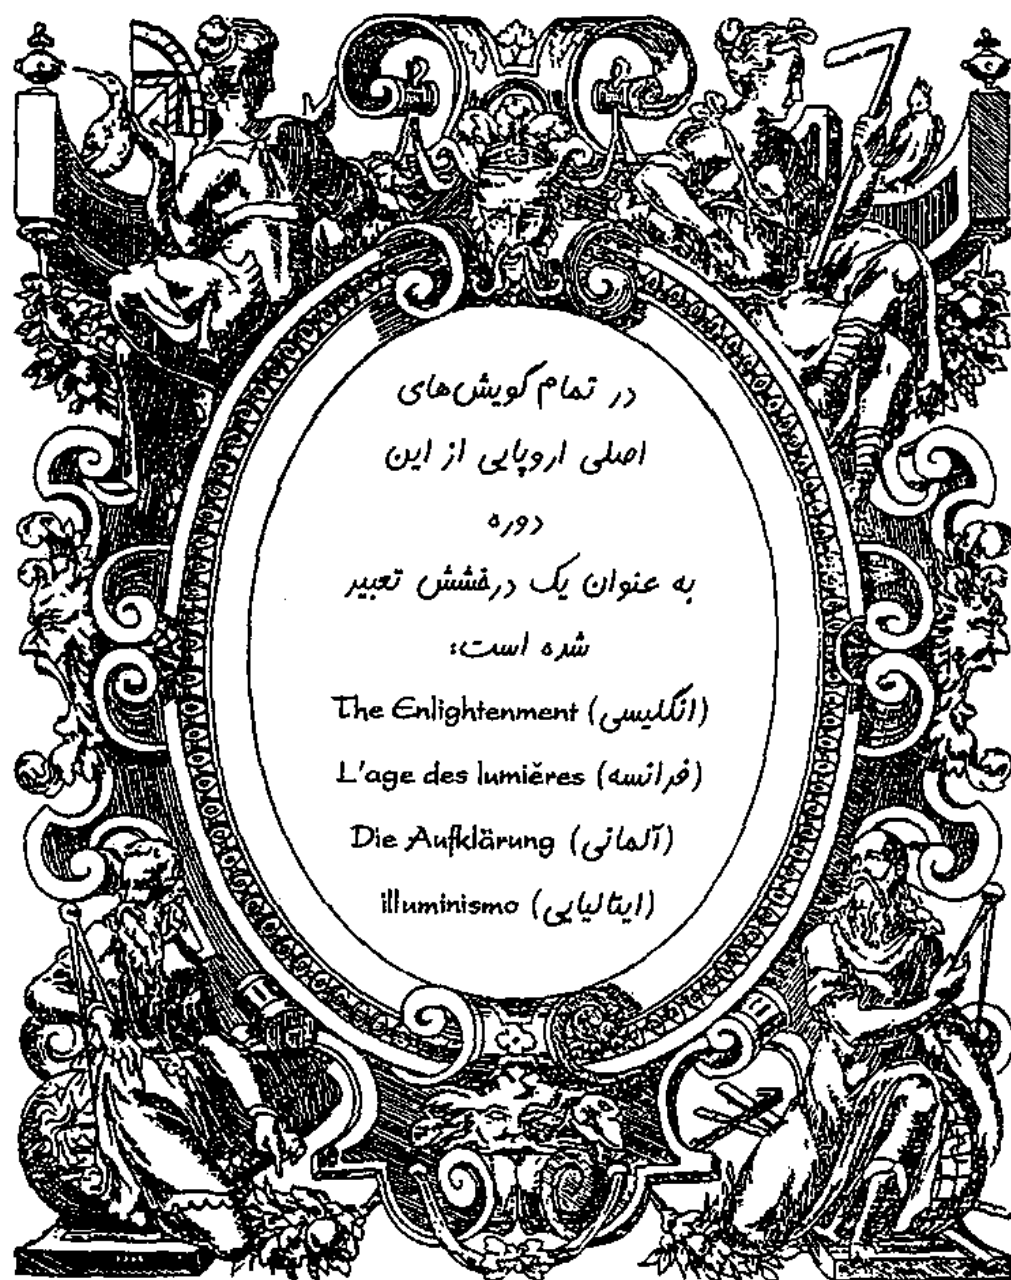 در تمام گویش‌های
اصلی اروپایی از این
دوره
به عنوان یک درخشش تعبیر
شده است:
The Enlightenment (انگلیسی)
L'age des lumiěres (فرانسه)
Die Aufklärung (آلمانی)
illuminismo (ایتالیایی)